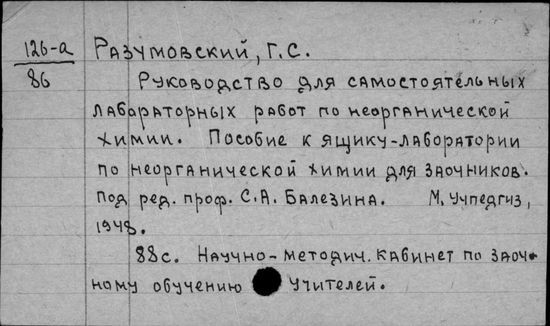 126-а
86
Разумовский, Г.С.
Руководство для самостоятельных
лабараторных работ по неорганической
химии. Пособие к ящику-лаборатории
по неорганической химии для заочников.
Под ред. проф. С.А. Балезина. М. Учпедгиз,
1948.
88с. Научно-методич. кабинет по заоч-
ному обучению учителей.